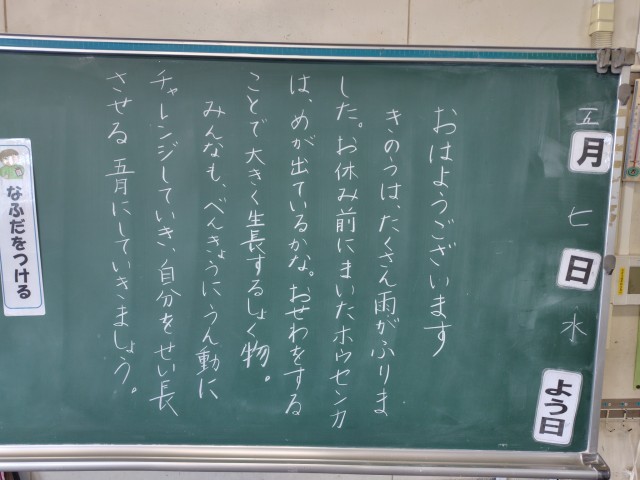 五月七日水よう日
おはようございます
きのうは、たくさん雨がふりま
した。お休み前にまいたホウセンカ
は、めが出ているかな。おせわをする
ことで大きく生長するしょく物。
みんなも、べんきょうにうん動に
チャレンジしていき、自分をせい長
させる五月にしていきましょう。
なふだをつける